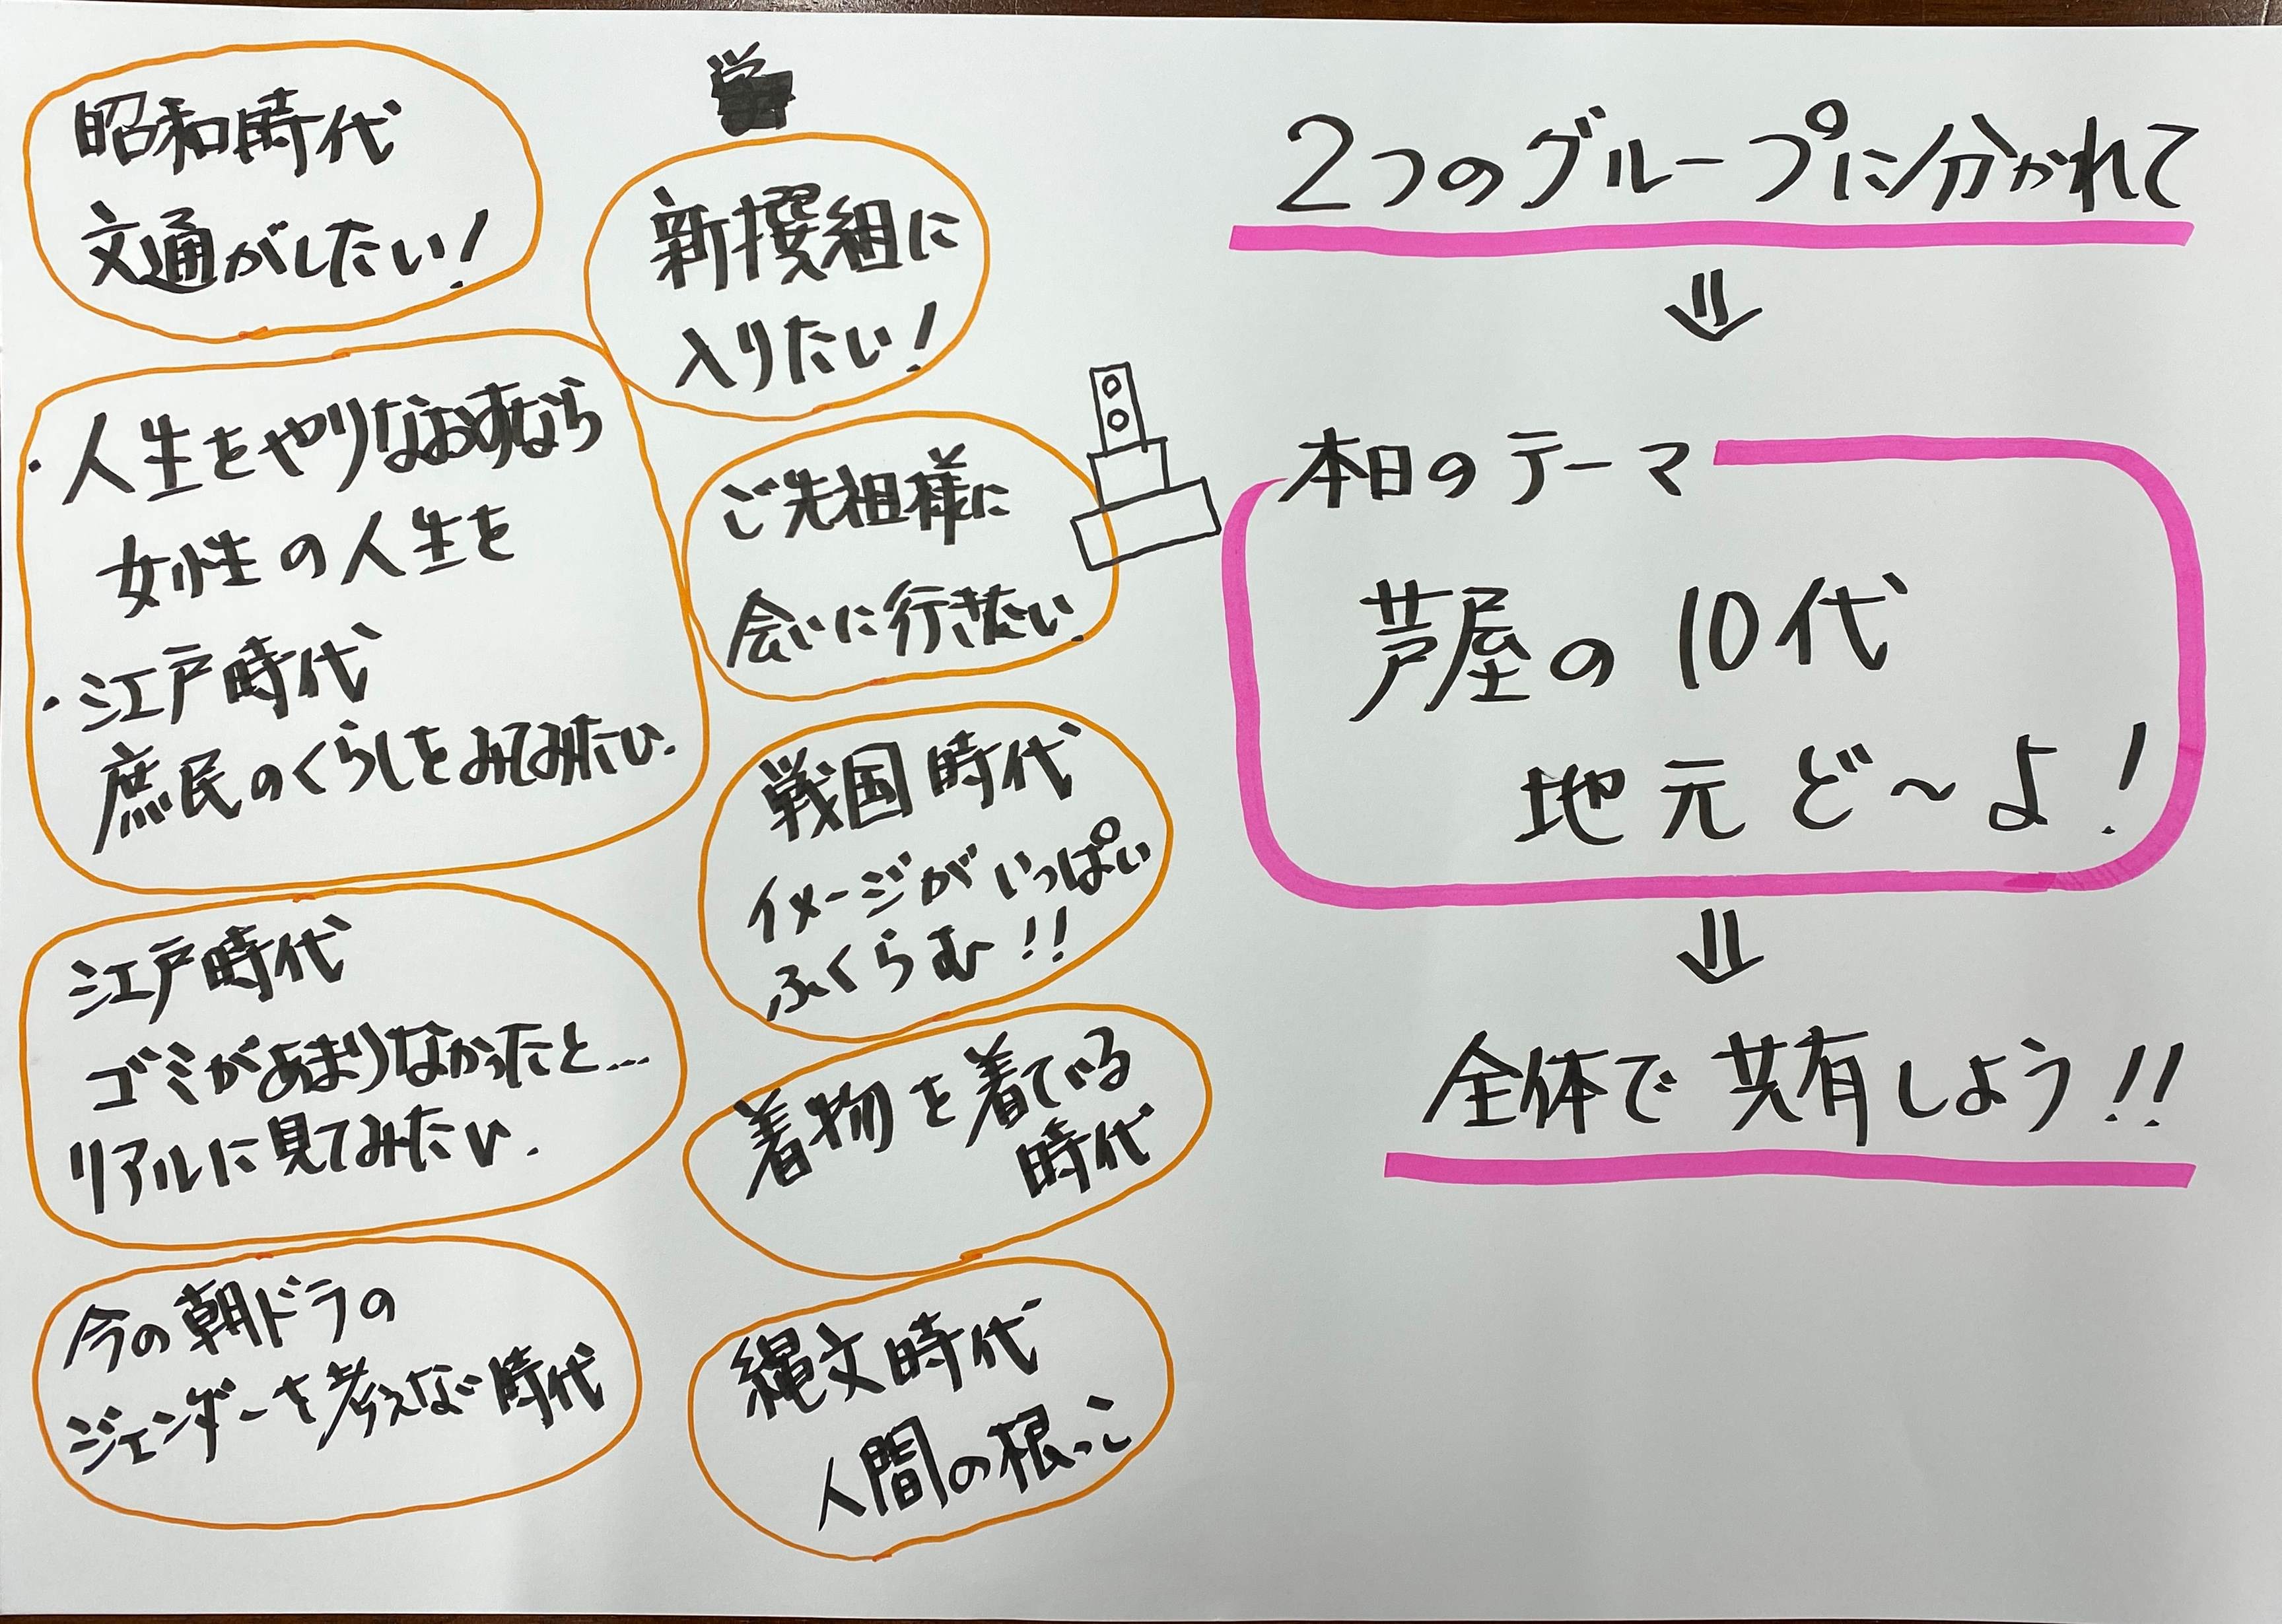 昭和時代
文通がしたい!
・人生をやりなおすなら
女性の人生を
・江戸時代
庶民のくらしをみてみたい.
江戸時代
ゴミがあまりなかったと…
リアルに見てみたい.
今の朝ドラの
ジェンダーを考えない時代
新撰組に
入りたい!
ご先祖様に
会いに行きたい.
戦国時代
イメージがいっぱい
ふくらむ!!
着物を着てる
時代
縄文時代
人間の根っこ
2つのグループに分かれて
⇓
本日のテーマ
芦屋の10代
地元ど〜よ!
⇓
全体で共有しよう!!